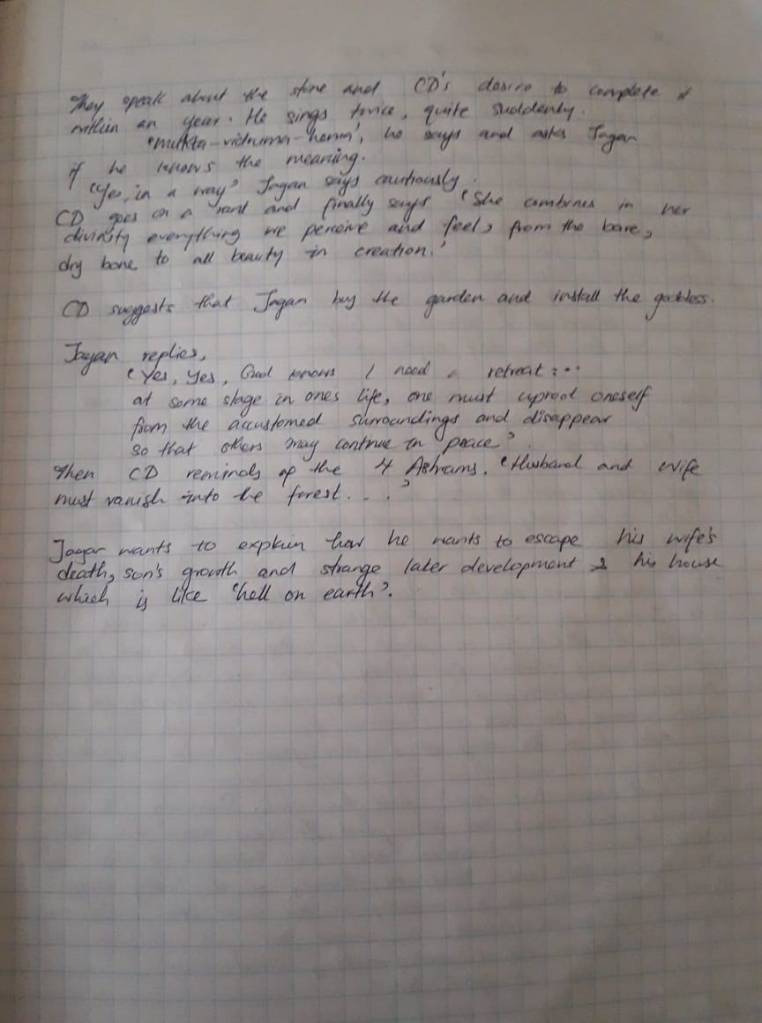 They speak about the stone and CD's desire to complete it
within an year. He sings twice, quite suddenly.
'mukta-vidruma-hema', he says and asks Jagan
if he knows the meaning.
'Yes, in a way' Jagan says cautiously.
CD goes on a rant and finally says 'She combines in her
divinity everything we perceive and feel, from the bare,
dry bone to all beauty in creation.'
CD suggests that Jagan buy the garden and install the goddess.
Jagan replies,
'Yes, Yes, God knows I need a retreat...
at some stage in ones life, one must uproot oneself
from the accustomed surroundings and disappear
so that others may continue in peace'.
Then CD reminds of the 4 Ashrams. 'Husband and wife
must vanish into the forest. . . .'
Jagan wants to explain how he wants to escape his wife's
death, son's growth and strange later development & his house
which is like 'hell on earth'.